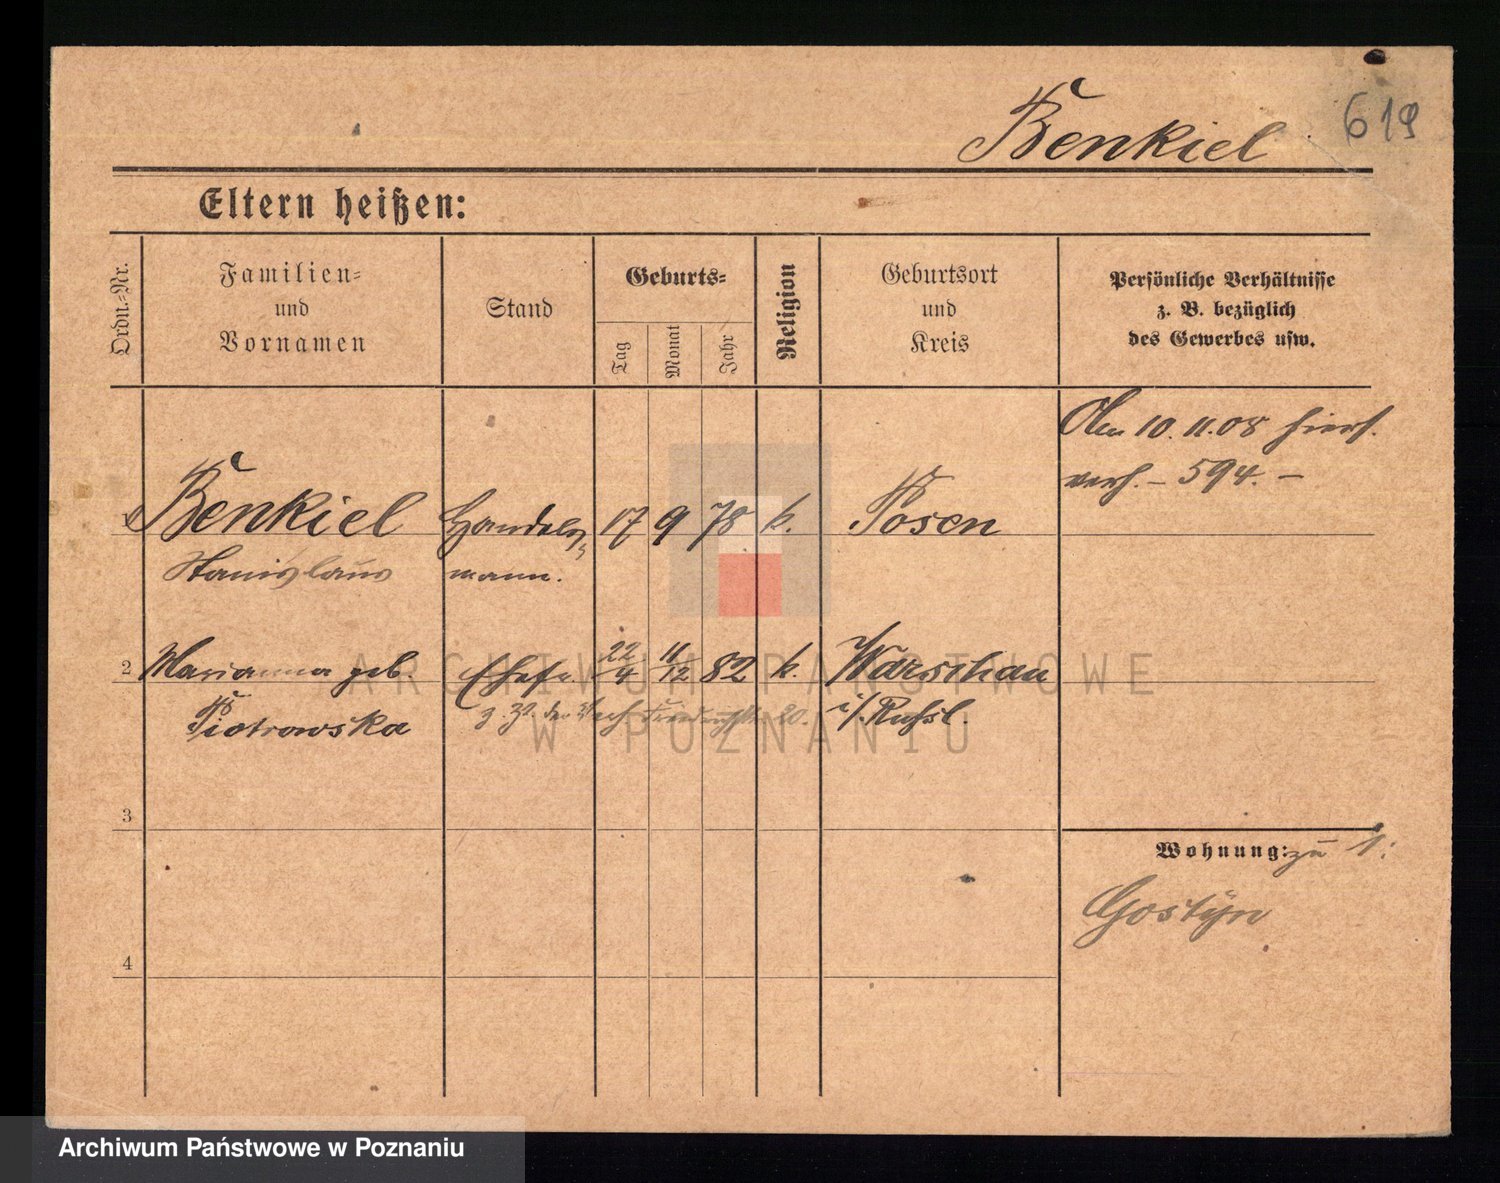 619
Benkiel
Eltern heißen:
Ordn.-Nr.
Familien-
und
Vornamen
Stand
Geburts-
Tag
Monat
Jahr
Religion
Geburtsort
und
Kreis
Persönliche Verhältnisse
z. B. bezüglich
des Gewerbes usw.
Am 10.11.08 hiers.
verh. – 594. –
1 Benkiel Handels= 17 9 78 k. Posen
Stanislaus mann.
2 Marianna geb. Ehefr. 22/4 11/12 82 k. Warschau
Piotrowska
i/. Rußl.
3
Wohnung: zu 1:
Gostyn
4
ARCHIWUM PAŃSTWOWE
W POZNANIU
Archiwum Państwowe w Poznaniu